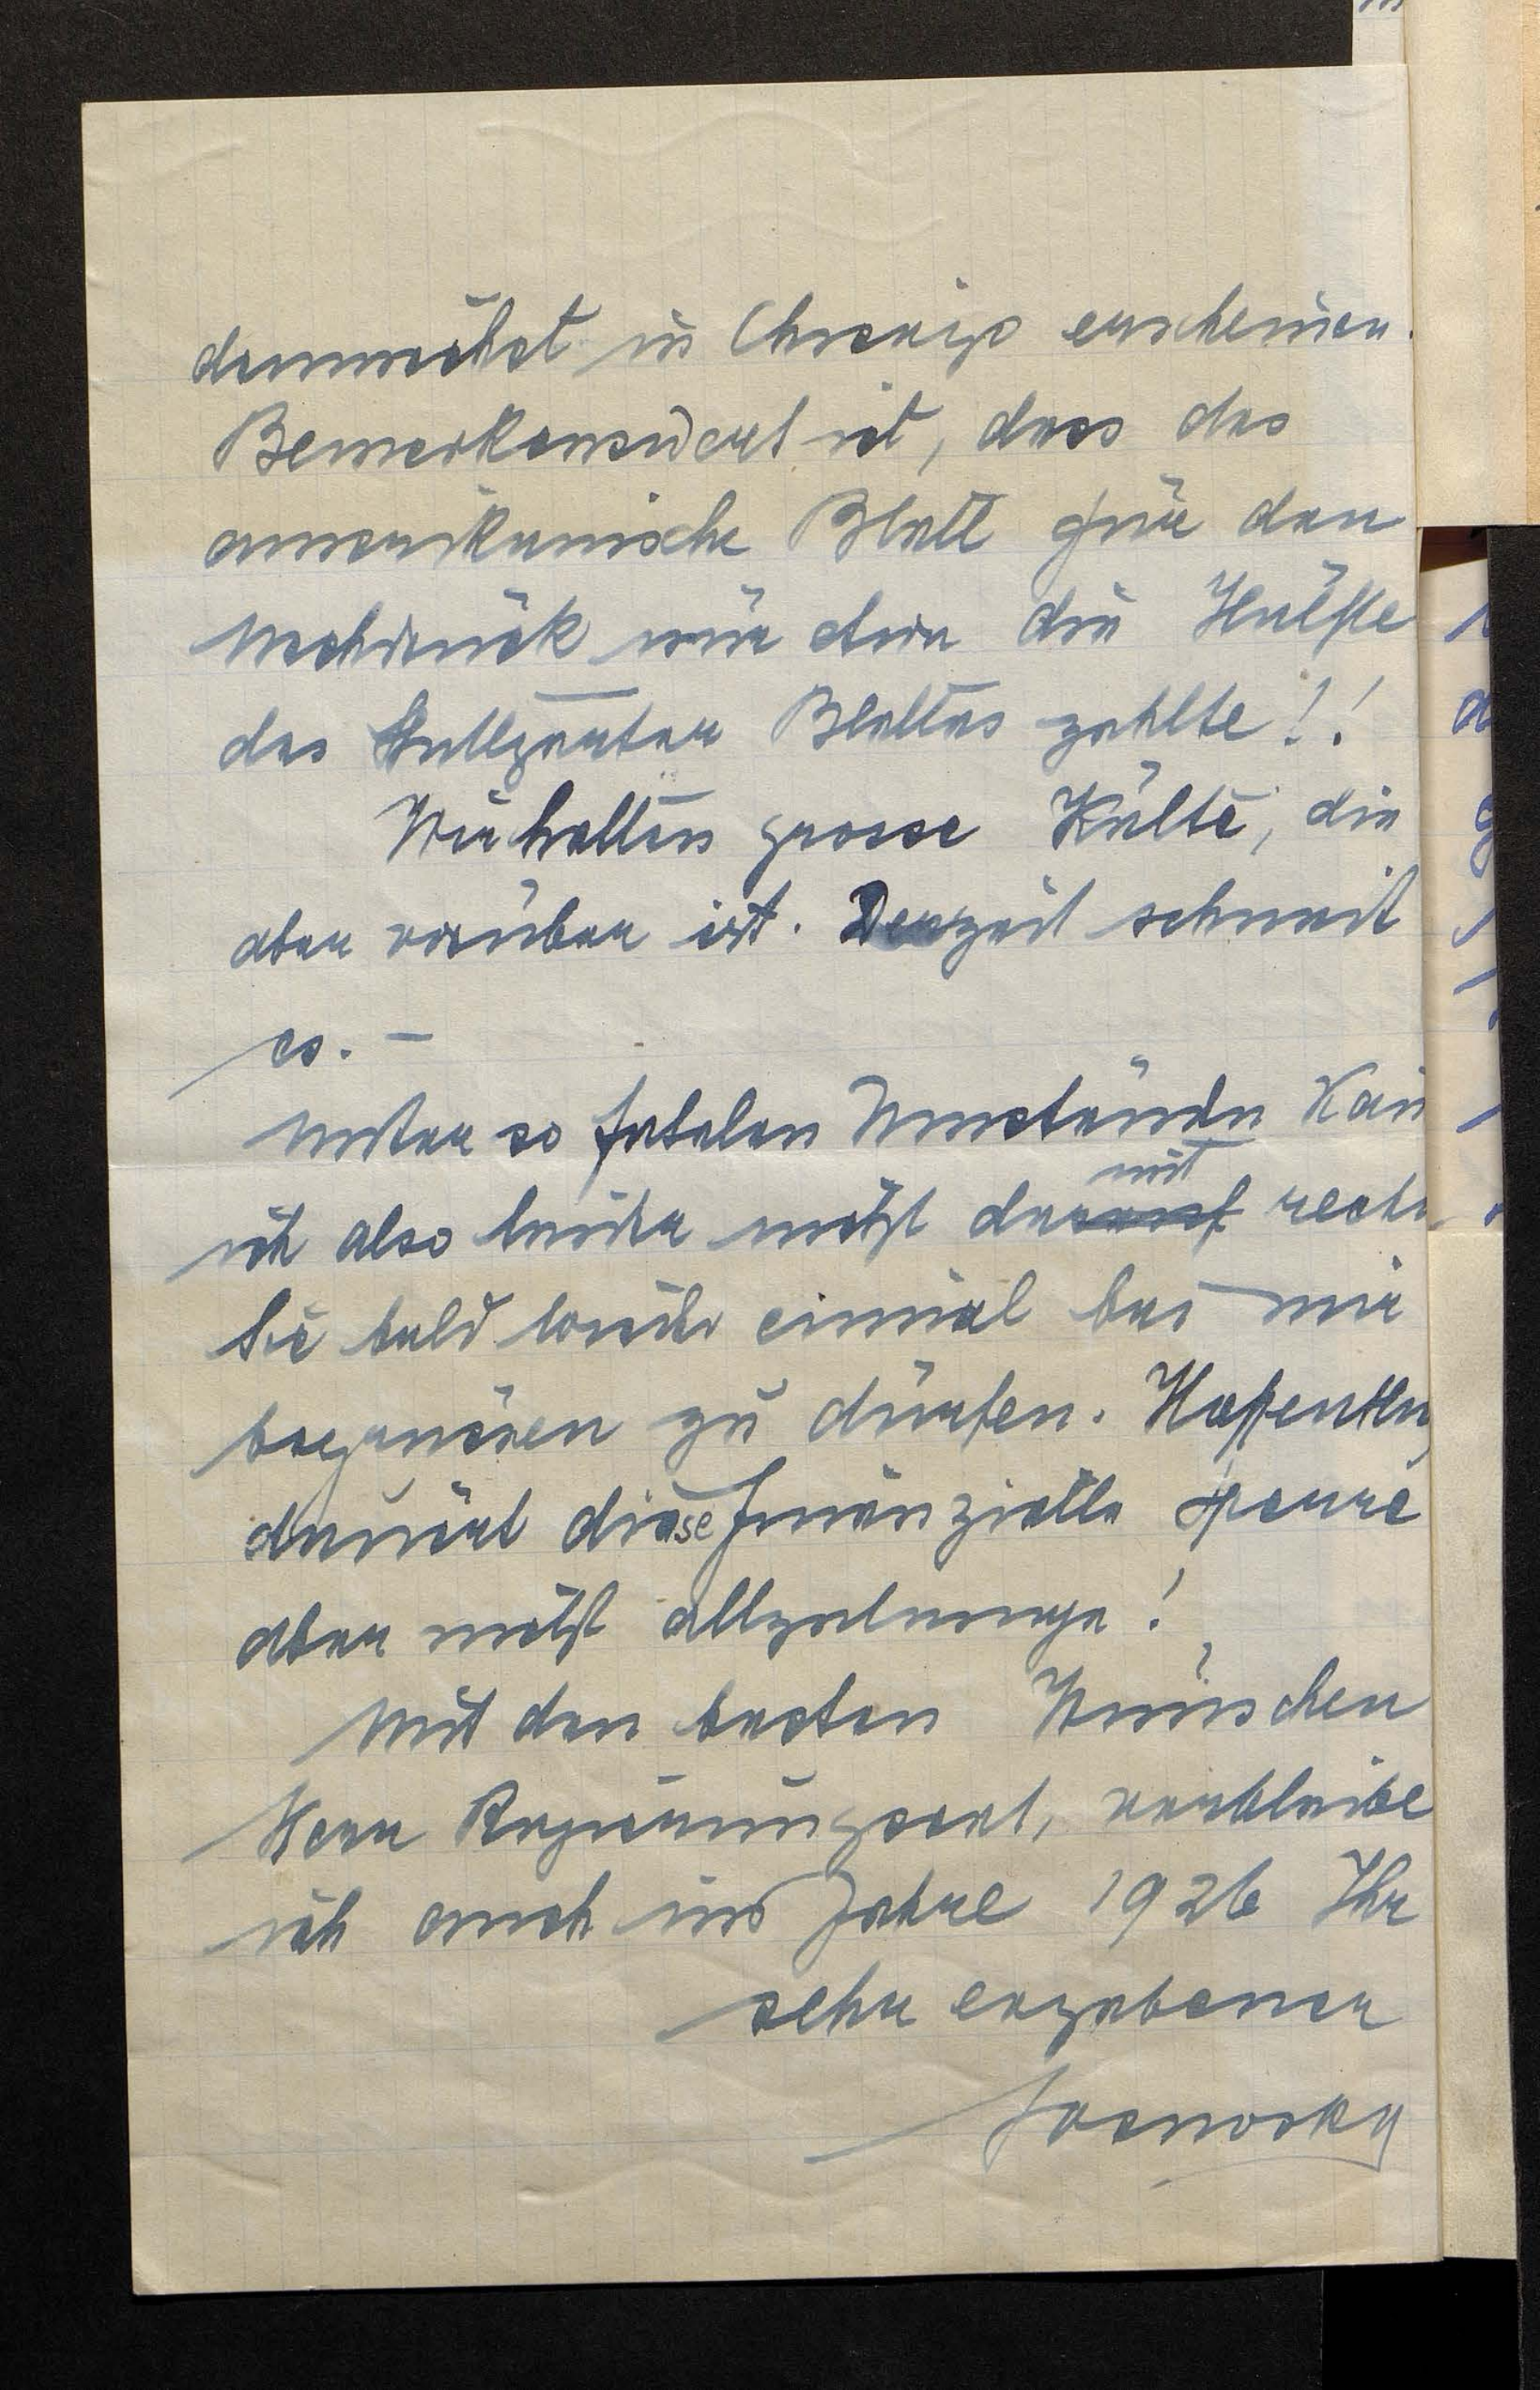 demnächst in Chicago erscheinen.
Bemerkenswert ist, dass das
amerikanische Blatt für den
Nachdruck nur etwa die Hälfte
des Stuttgarter Blattes zahlte!!
Wir hatten grosse Kälte, die
aber vorüber ist. Derzeit schneit
es. –
Unter so fatalen Umständen kann
ich also leider nicht damit rechnen
Sie bald wieder einmal bei mir
begrüssen zu dürfen. Hoffentlich
dauert diese finanzielle Sperre
aber nicht allzulange!
Mit den besten Wünschen
Herr Regierungsrat, verbleibe
ich auch im Jahre 1926 Ihr
sehr ergebener
Sosnosky